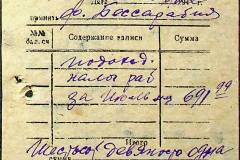 Дата
принять ф. Бессарабия
№ бал. сч Содержание записи Сумма
подоход.
налог раб
за Июль м-ц 691 99
Итого
Шестьсот девяносто одна